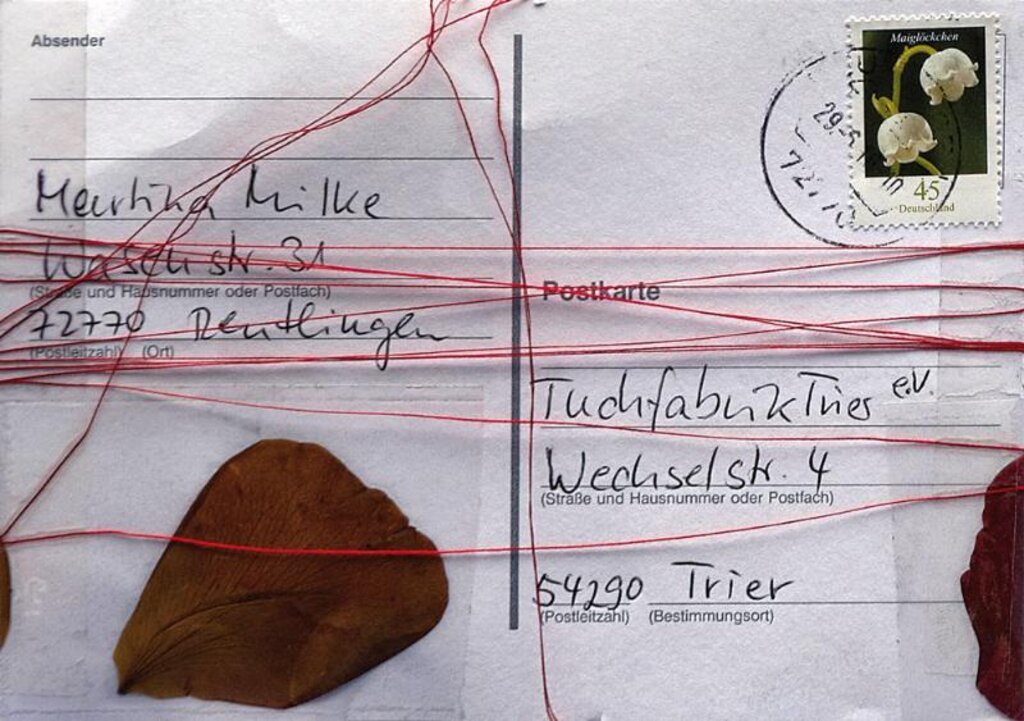 Absender
Martina Milke
Wasenstr. 31
(Straße und Hausnummer oder Postfach)
72770 Reutlingen
(Postleitzahl) (Ort)
Maiglöckchen
29.
45
Deutschland
Postkarte
Tuchfabrik Trier e.V.
Wechselstr. 4
(Straße und Hausnummer oder Postfach)
54290 Trier
(Postleitzahl) (Bestimmungsort)